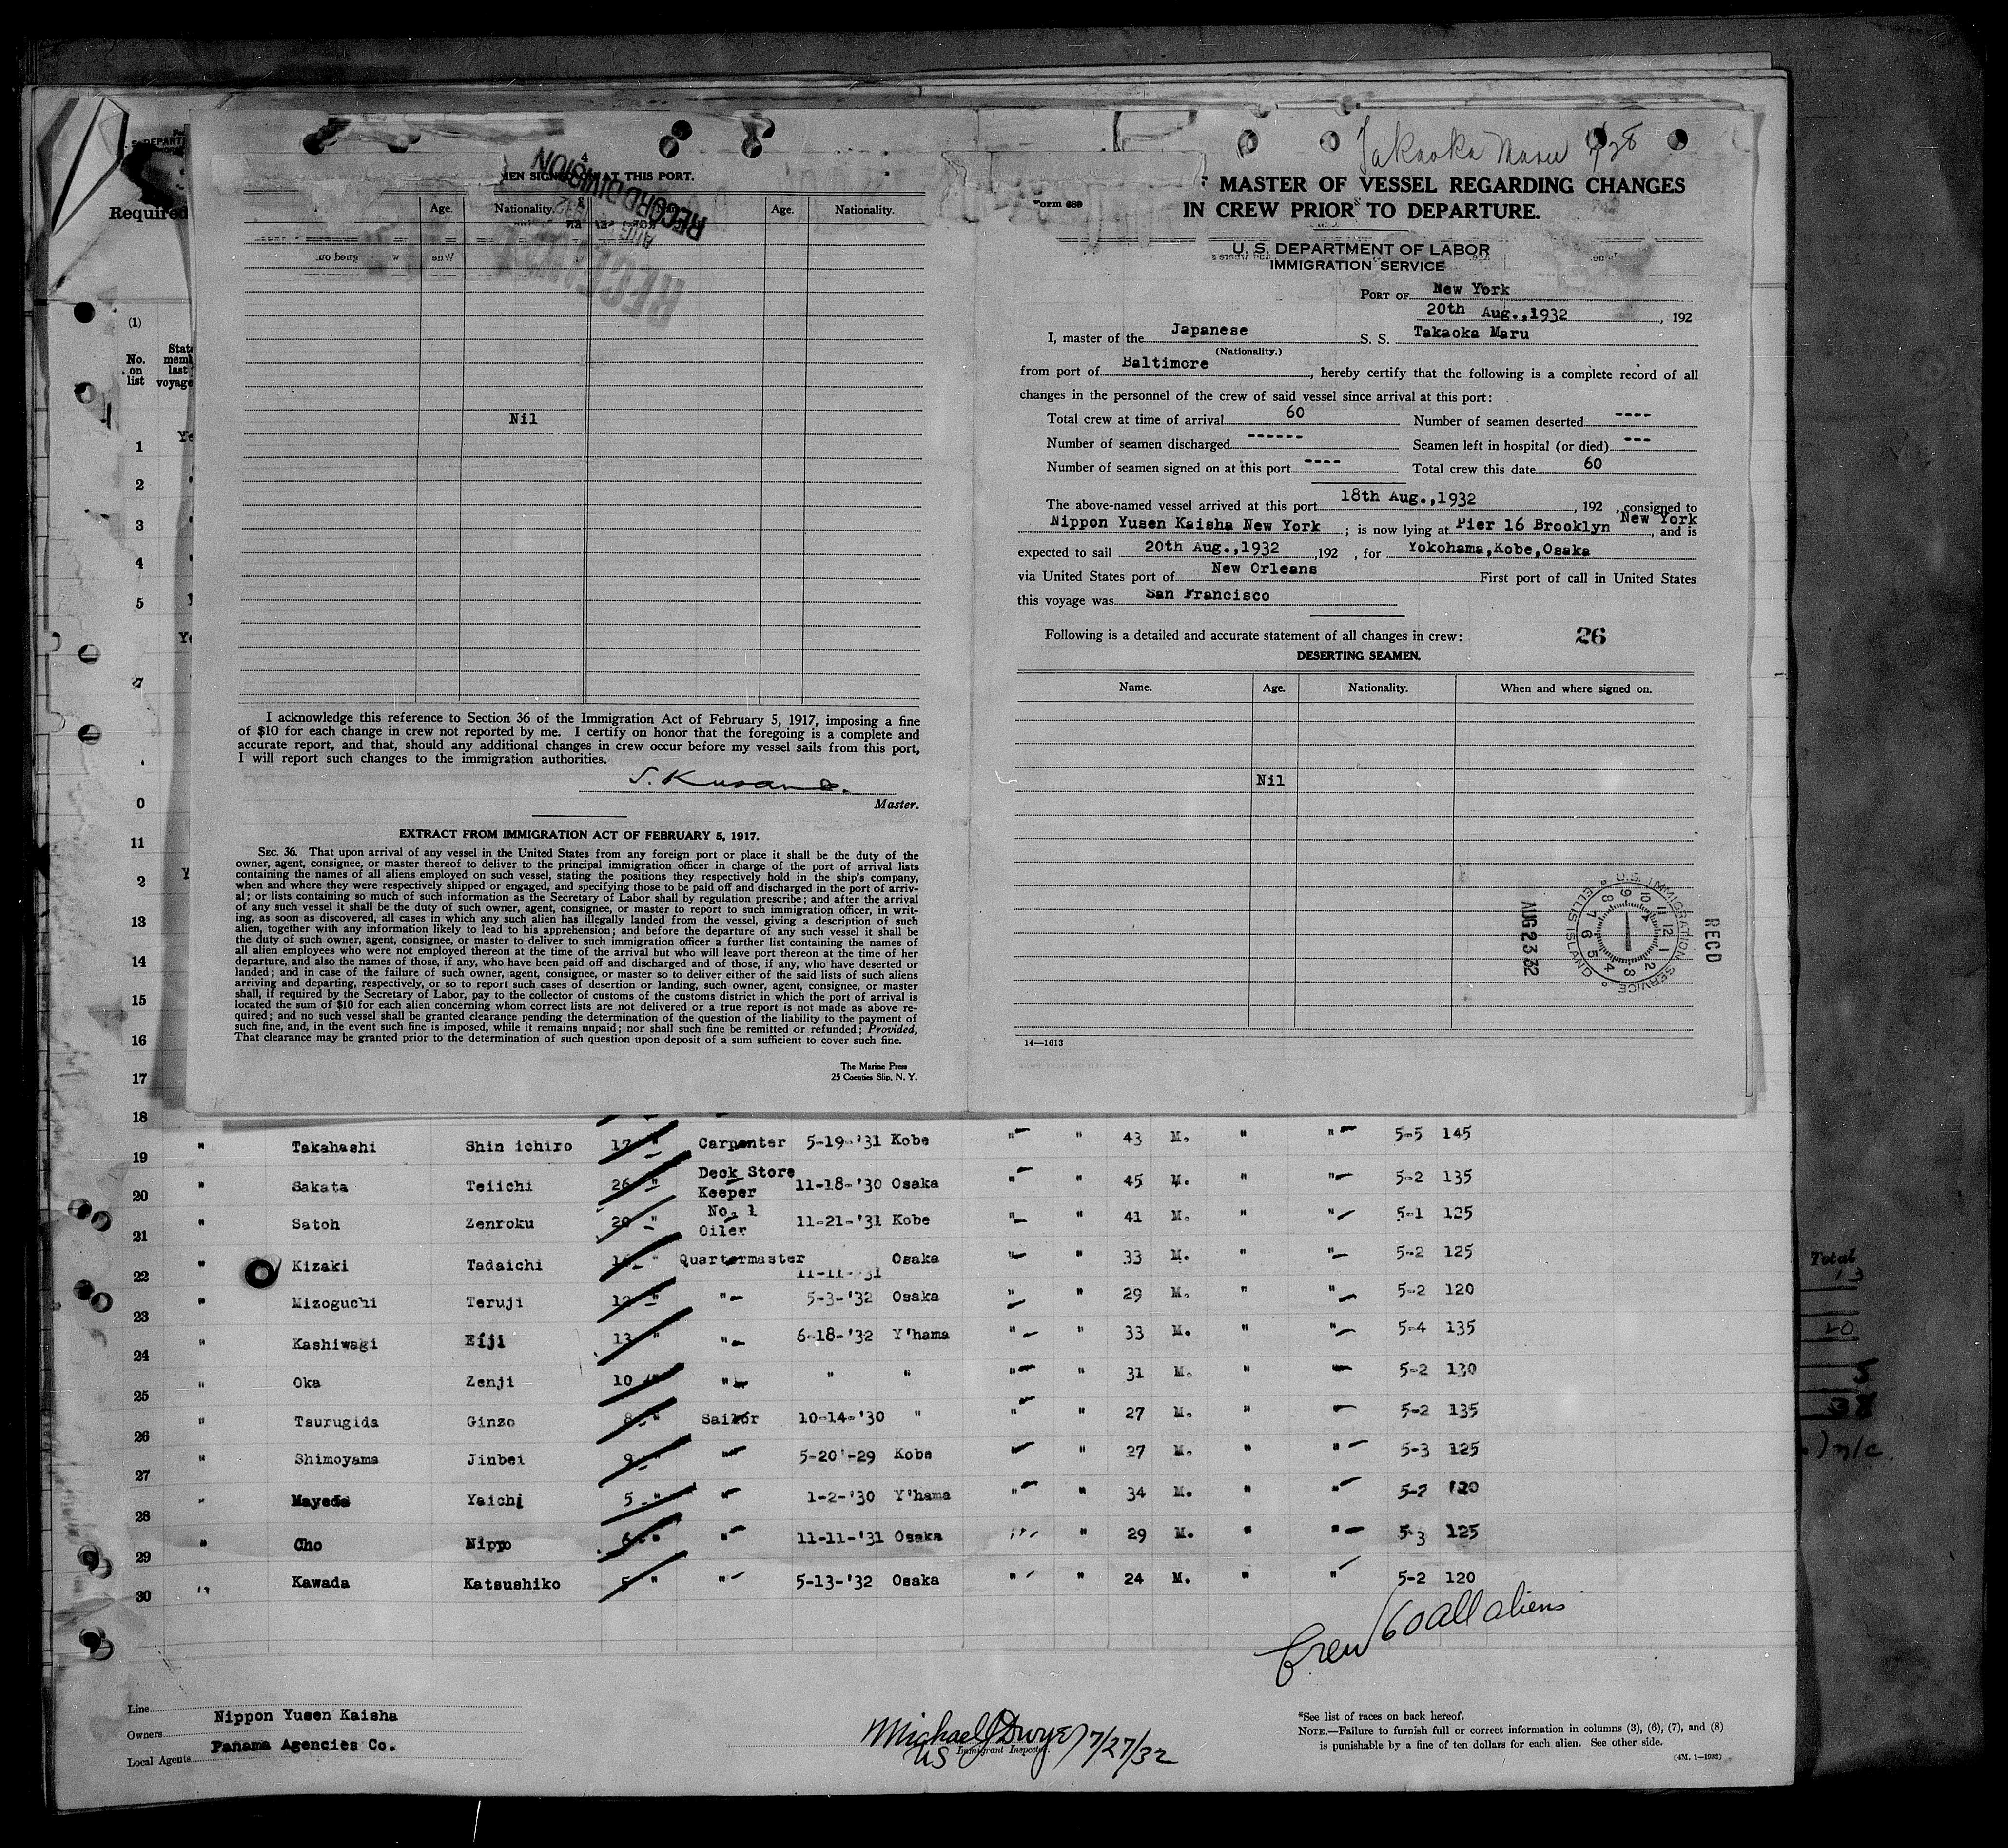 Takaoka Maru
MEN SIGNED ON AT THIS PORT.
Age. Nationality. Age. Nationality.
RECORD DIVISION
RECEIVED
Nil
I acknowledge this reference to Section 36 of the Immigration Act of February 5, 1917, imposing a fine
of $10 for each change in crew not reported by me. I certify on honor that the foregoing is a complete and
accurate report, and that, should any additional changes in crew occur before my vessel sails from this port,
I will report such changes to the immigration authorities.
S. Kusano.
Master.
EXTRACT FROM IMMIGRATION ACT OF FEBRUARY 5, 1917.
SEC. 36. That upon arrival of any vessel in the United States from any foreign port or place it shall be the duty of the
owner, agent, consignee, or master thereof to deliver to the principal immigration officer in charge of the port of arrival lists
containing the names of all aliens employed on such vessel, stating the positions they respectively hold in the ship's company,
when and where they were respectively shipped or engaged, and specifying those to be paid off and discharged in the port of arriv-
al; or lists containing so much of such information as the Secretary of Labor shall by regulation prescribe; and after the arrival
of any such vessel it shall be the duty of such owner, agent, consignee, or master to report to such immigration officer, in writ-
ing, as soon as discovered, all cases in which any such alien has illegally landed from the vessel, giving a description of such
alien, together with any information likely to lead to his apprehension; and before the departure of any such vessel it shall be
the duty of such owner, agent, consignee, or master to deliver to such immigration officer a further list containing the names of
all alien employees who were not employed thereon at the time of the arrival but who will leave port thereon at the time of her
departure, and also the names of those, if any, who have been paid off and discharged and of those, if any, who have deserted or
landed; and in case of the failure of such owner, agent, consignee, or master so to deliver either of the said lists of such aliens
arriving and departing, respectively, or so to report such cases of desertion or landing, such owner, agent, consignee, or master
shall, if required by the Secretary of Labor, pay to the collector of customs of the customs district in which the port of arrival is
located the sum of $10 for each alien concerning whom correct lists are not delivered or a true report is not made as above re-
quired; and no such vessel shall be granted clearance pending the determination of the question of the liability to the payment of
such fine, and, in the event such fine is imposed, while it remains unpaid; nor shall such fine be remitted or refunded; Provided,
That clearance may be granted prior to the determination of such question upon deposit of a sum sufficient to cover such fine.
The Marine Press
25 Coenties Slip, N. Y.
Form 689
MASTER OF VESSEL REGARDING CHANGES
IN CREW PRIOR TO DEPARTURE.
U. S. DEPARTMENT OF LABOR
IMMIGRATION SERVICE
PORT OF New York
20th Aug.,1932, 192
I, master of the Japanese S. S. Takaoka Maru
(Nationality.)
from port of Baltimore, hereby certify that the following is a complete record of all
changes in the personnel of the crew of said vessel since arrival at this port:
Total crew at time of arrival 60 Number of seamen deserted ----
Number of seamen discharged ------ Seamen left in hospital (or died) ---
Number of seamen signed on at this port ---- Total crew this date 60
The above-named vessel arrived at this port 18th Aug.,1932, 192 , consigned to
Nippon Yusen Kaisha New York ; is now lying at Pier 16 Brooklyn New York, and is
expected to sail 20th Aug.,1932 ,192 , for Yokohama,Kobe,Osaka
via United States port of New Orleans First port of call in United States
this voyage was San Francisco
Following is a detailed and accurate statement of all changes in crew: 26
DESERTING SEAMEN.
Name. Age. Nationality. When and where signed on.
Nil
REC'D
U.S. IMMIGRATION SERVICE ELLIS ISLAND
AUG 23 32
14—1613
Required
(1)
No. on list
1
2
3
4
5
7
0
11
2
13
14
15
16
17
18
19 " Takahashi Shin ichiro 17 " Carpenter 5-19-'31 Kobe " " 43 M. " " 5-5 145
20 " Sakata Teiichi 26 " Deck Store Keeper 11-18-'30 Osaka " " 45 M. " " 5-2 135
21 " Satoh Zenroku 20 " No. 1 Oiler 11-21-'31 Kobe " " 41 M. " " 5-1 125
22 " Kizaki Tadaichi " Quartermaster 11-11-'31 Osaka " " 33 M. " " 5-2 125
23 " Mizoguchi Teruji 12 " " 5-3-'32 Osaka " " 29 M. " " 5-2 120
24 " Kashiwagi Eiji 13 " " 6-18-'32 Y'hama " " 33 M. " " 5-4 135
25 " Oka Zenji 10 " " " " " " 31 M. " " 5-2 130
26 " Tsurugida Ginzo 8 " Sailor 10-14-'30 " " " 27 M. " 5-2 135
27 " Shimoyama Jinbei 9 " " 5-20'-29 Kobe " 27 M. " " 5-3 125
28 " Mayeda Yaichi 5 " " 1-2-'30 Y'hama " " 34 M. " " 5-2 120
29 " Cho Nippo 6 " " 11-11-'31 Osaka " " 29 M. " " 5-3 125
30 " Kawada Katsushiko 5 " " 5-13-'32 Osaka " " 24 M. " " 5-2 120
Crew 60 all aliens
Line
Nippon Yusen Kaisha
Owners
Panama Agencies Co.
Local Agents
Michael J Dwyer 7/27/32
US Immigrant Inspector.
*See list of races on back hereof.
NOTE.—Failure to furnish full or correct information in columns (3), (6), (7), and (8)
is punishable by a fine of ten dollars for each alien. See other side.
(4M. 1-1932)
Total